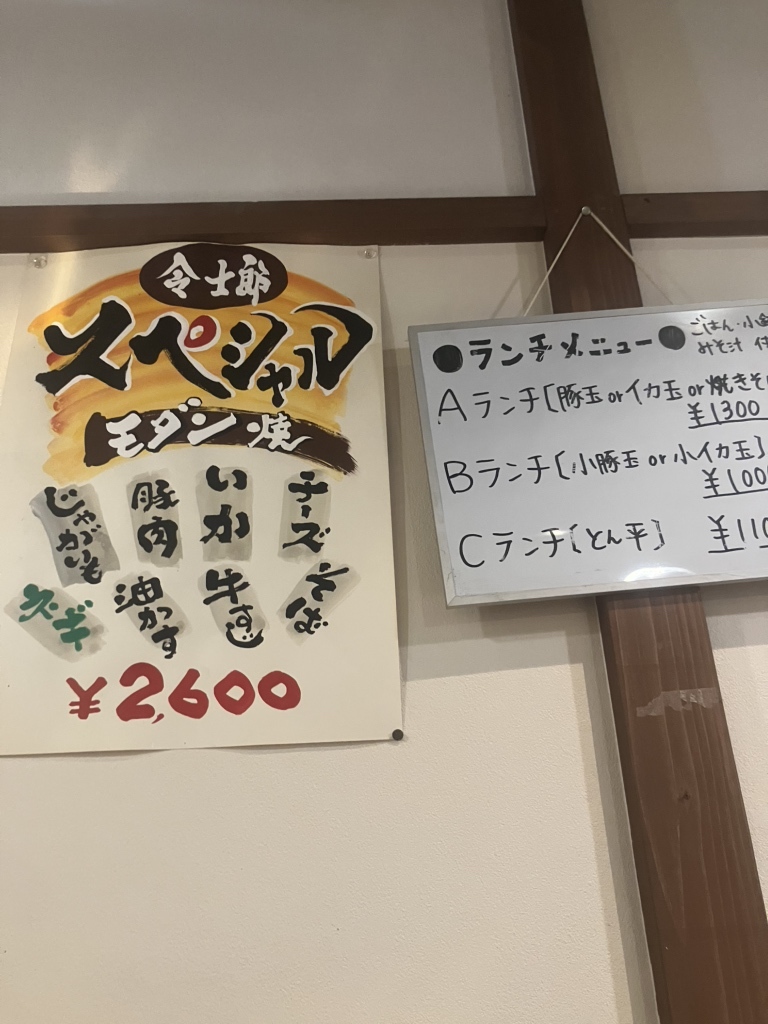 令士郎
スペシャル
モダン焼
チーズ
いか
豚肉
じゃがいも
そば
牛すじ
油かす
ネギ
¥2,600
●ランチメニュー●
ごはん・小
みそ汁
Aランチ[豚玉orイカ玉or焼きそ
¥1300
Bランチ[小豚玉or小イカ玉]
¥100
Cランチ[とん平] ¥110